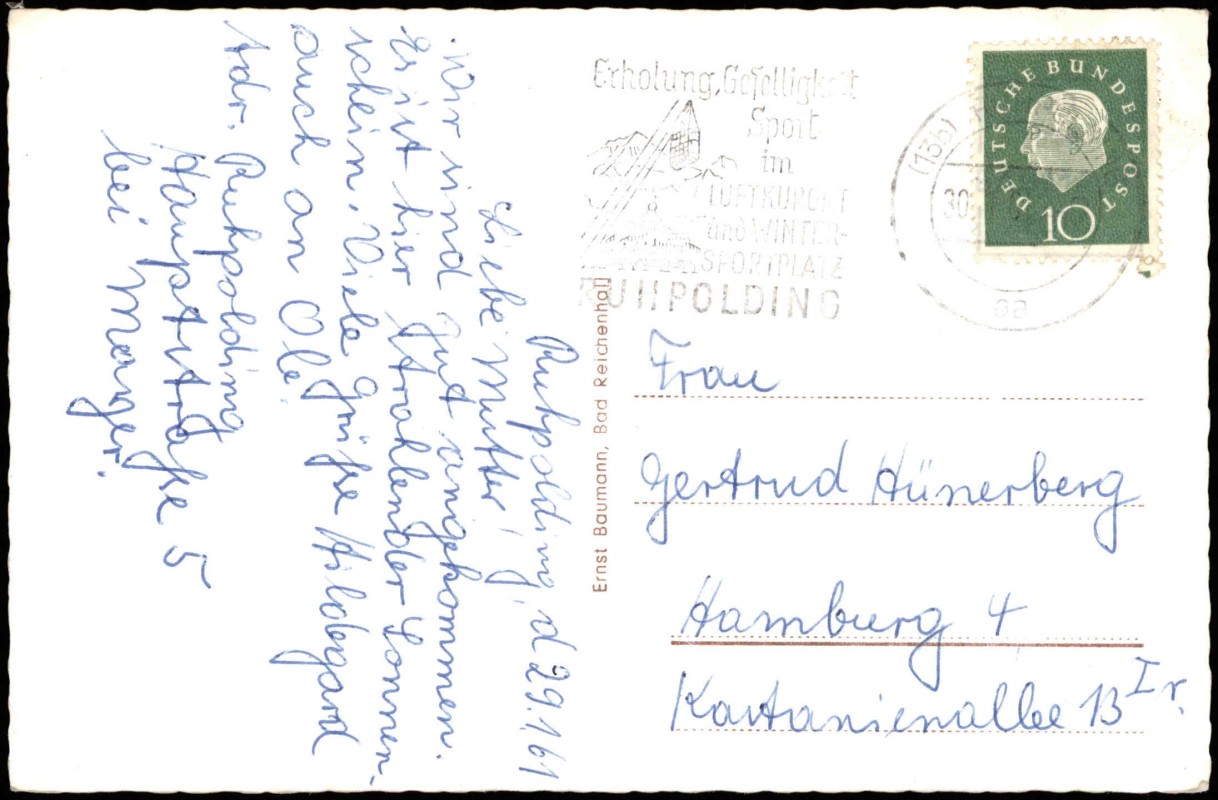 Ruhpolding, d 29.1.61
Liebe Mutter!
Wir sind gut angekommen.
Es ist hier strahlender Sonnen-
schein. Viele Grüße Hildegard
auch an Ole.
Adr. Ruhpolding
Hauptstraße 5
bei Manger.
Ernst Baumann, Bad Reichenhall
Erholung, Geselligkeit
Sport
im
LUFTKURORT
und WINTER-
SPORTPLATZ
RUHPOLDING
(13b)
30
aa
DEUTSCHE BUNDESPOST
10
Frau
Gertrud Hünerberg
Hamburg 4
Kastanienallee 13 I r.